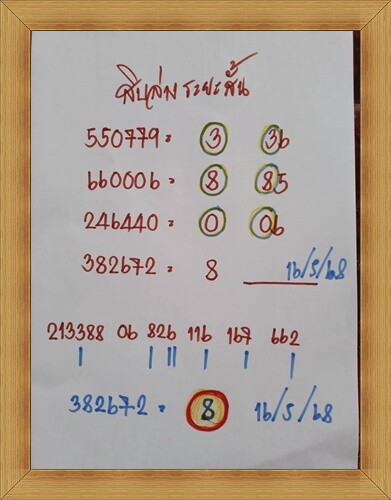 สิบล่าง ระยะสั้น
550779 = 3 36
660006 = 8 85
246440 = 0 06
382672 = 8 16/5/68
213388 06 826 116 167 662
382672 = 8 16/5/68